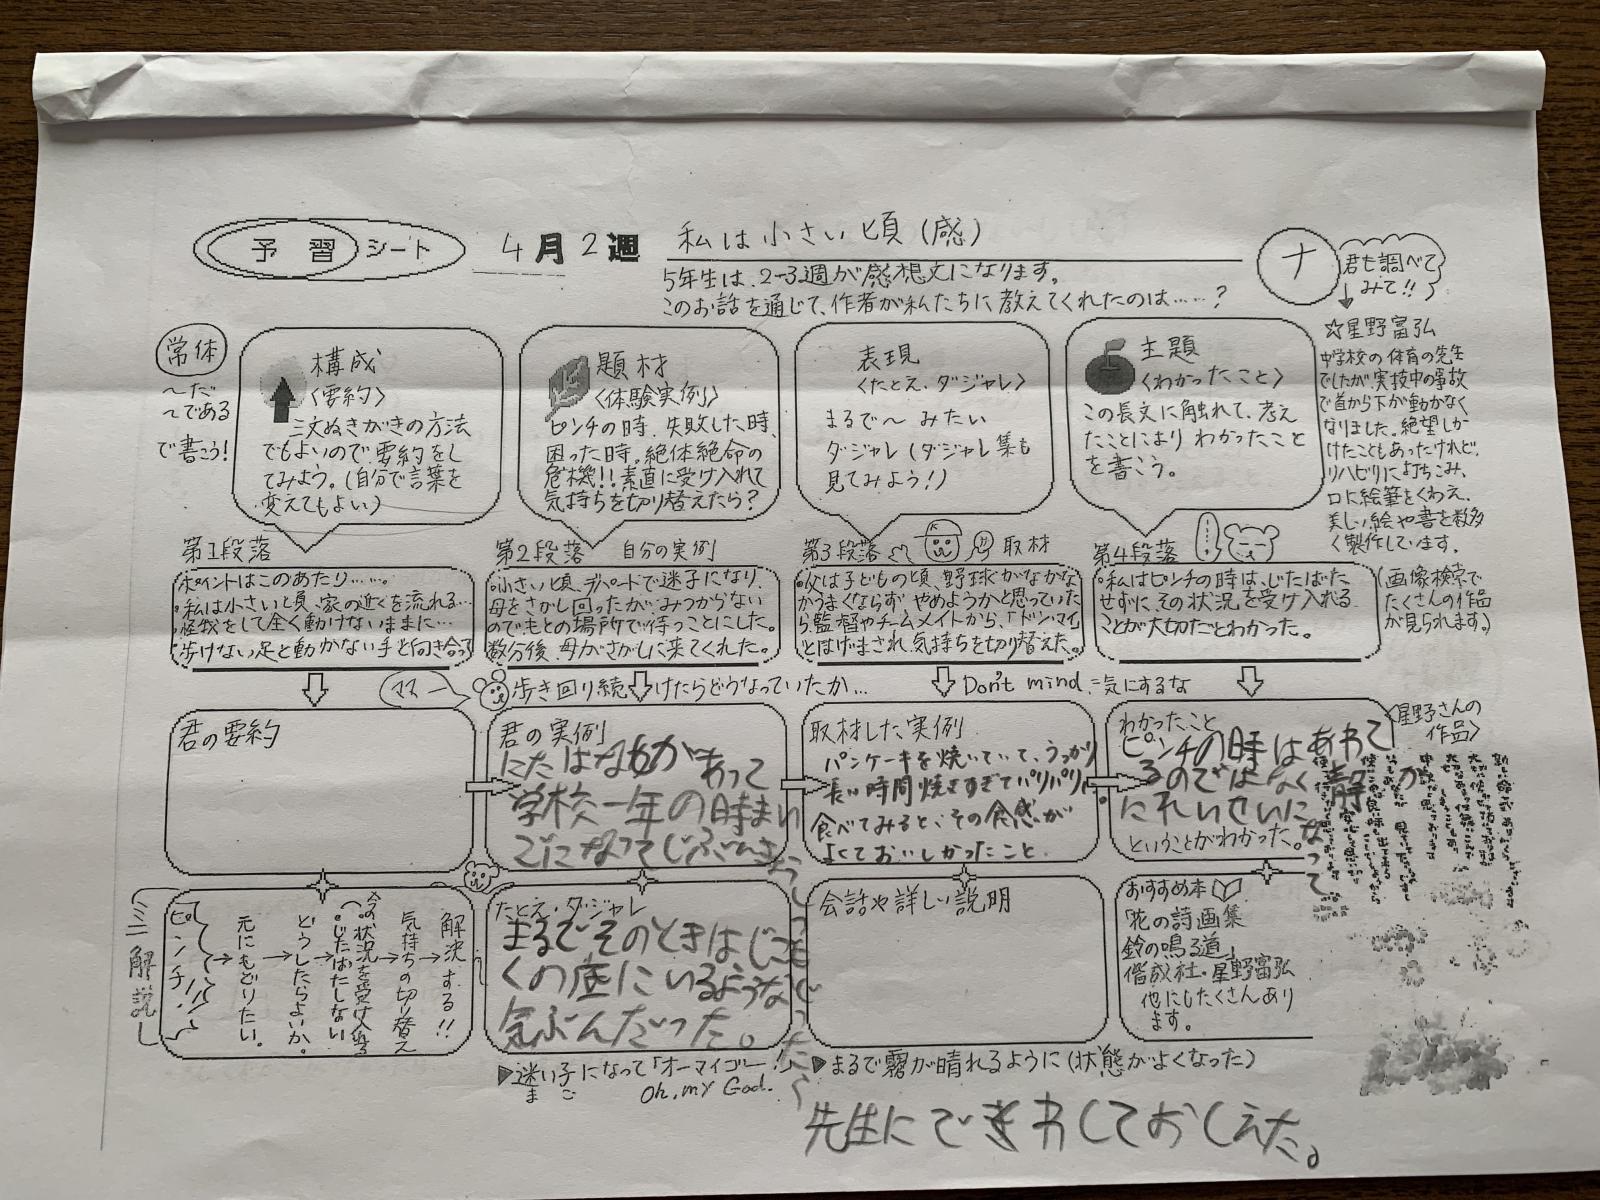 予習シート
4月2週
私は小さい頃（感）
5年生は、2-3週が感想文になります。
このお話を通じて、作者が私たちに教えてくれたのは……？
ナ
君も調べて
みて!!
常体
～だ
～である
で書こう!
構成
〈要約〉
三文ぬきがきの方法
でもよいので要約をし
てみよう。（自分で言葉を
変えてもよい）
題材
〈体験実例〉
ピンチの時、失敗した時、
困った時。絶体絶命の
危機!!素直に受け入れて
気持ちを切り替えたら？
表現
〈たとえ・ダジャレ〉
まるで～みたい
ダジャレ（ダジャレ集も
見てみよう!）
主題
〈わかったこと〉
この長文に触れて、考え
たことによりわかったこと
を書こう。
☆星野富弘
中学校の体育の先生
でしたが、実技中の事故
で首から下が動かなく
なりました。絶望しか
けたこともあったけれど、
リハビリに打ちこみ、
口に絵筆をくわえ、
美しい絵や書を数多
く製作しています。
（画像検索で
たくさんの作品
が見られます。）
第1段落
ポイントはこのあたり……。
・私は小さい頃、家の近くを流れる…
・怪我をして全く動けないままに…
・歩けない足と動かない手と向き合って
第2段落 自分の実例
・小さい頃、デパートで迷子になり、
母をさがし回ったが、みつからない
のでもとの場所で待つことにした。
数分後、母がさがしに来てくれた。
第3段落 取材
・父は子どもの頃、野球がなかな
かうまくならず やめようかと思っていた
ら、監督やチームメイトから、「ドンマイ」
とはげまされ、気持ちを切り替えた。
第4段落
・私はピンチの時は、じたばた
せずに、その状況を受け入れる
ことが大切だとわかった。
ママー
歩き回り続けたらどうなっていたか…
Don't mind.=気にするな
君の要約
君の実例
にたはなしがあって
学校一年の時まい
ごになってじぶんき
取材した実例
パンケーキを焼いていて、うっかり
長い時間焼きすぎてパリパリに。
食べてみると、その食感が
よくておいしかったこと。
わかったこと
ピンチの時はあわて
るのではなく静か
にれいせいになって
ということがわかった。
〈星野さんの
作品〉
ミニ解説
ピンチ！
→元にもどりたい。
→どうしたらよいか。
→今の状況を受け入れる
（じたばたしない）
→気持ちの切り替え
→解決する!!
たとえ・ダジャレ
まるでそのときはじご
くの底にいるような
気ぶんだった。
会話や詳しい説明
おすすめ本
「花の詩画集
鈴の鳴る道」
偕成社・星野富弘
他にもたくさんあり
ます。
▶迷い子になって「オーマイゴー!」
まご
Oh, my God.
▶まるで霧が晴れるように（状態がよくなった）
先生にできわしておしえた。